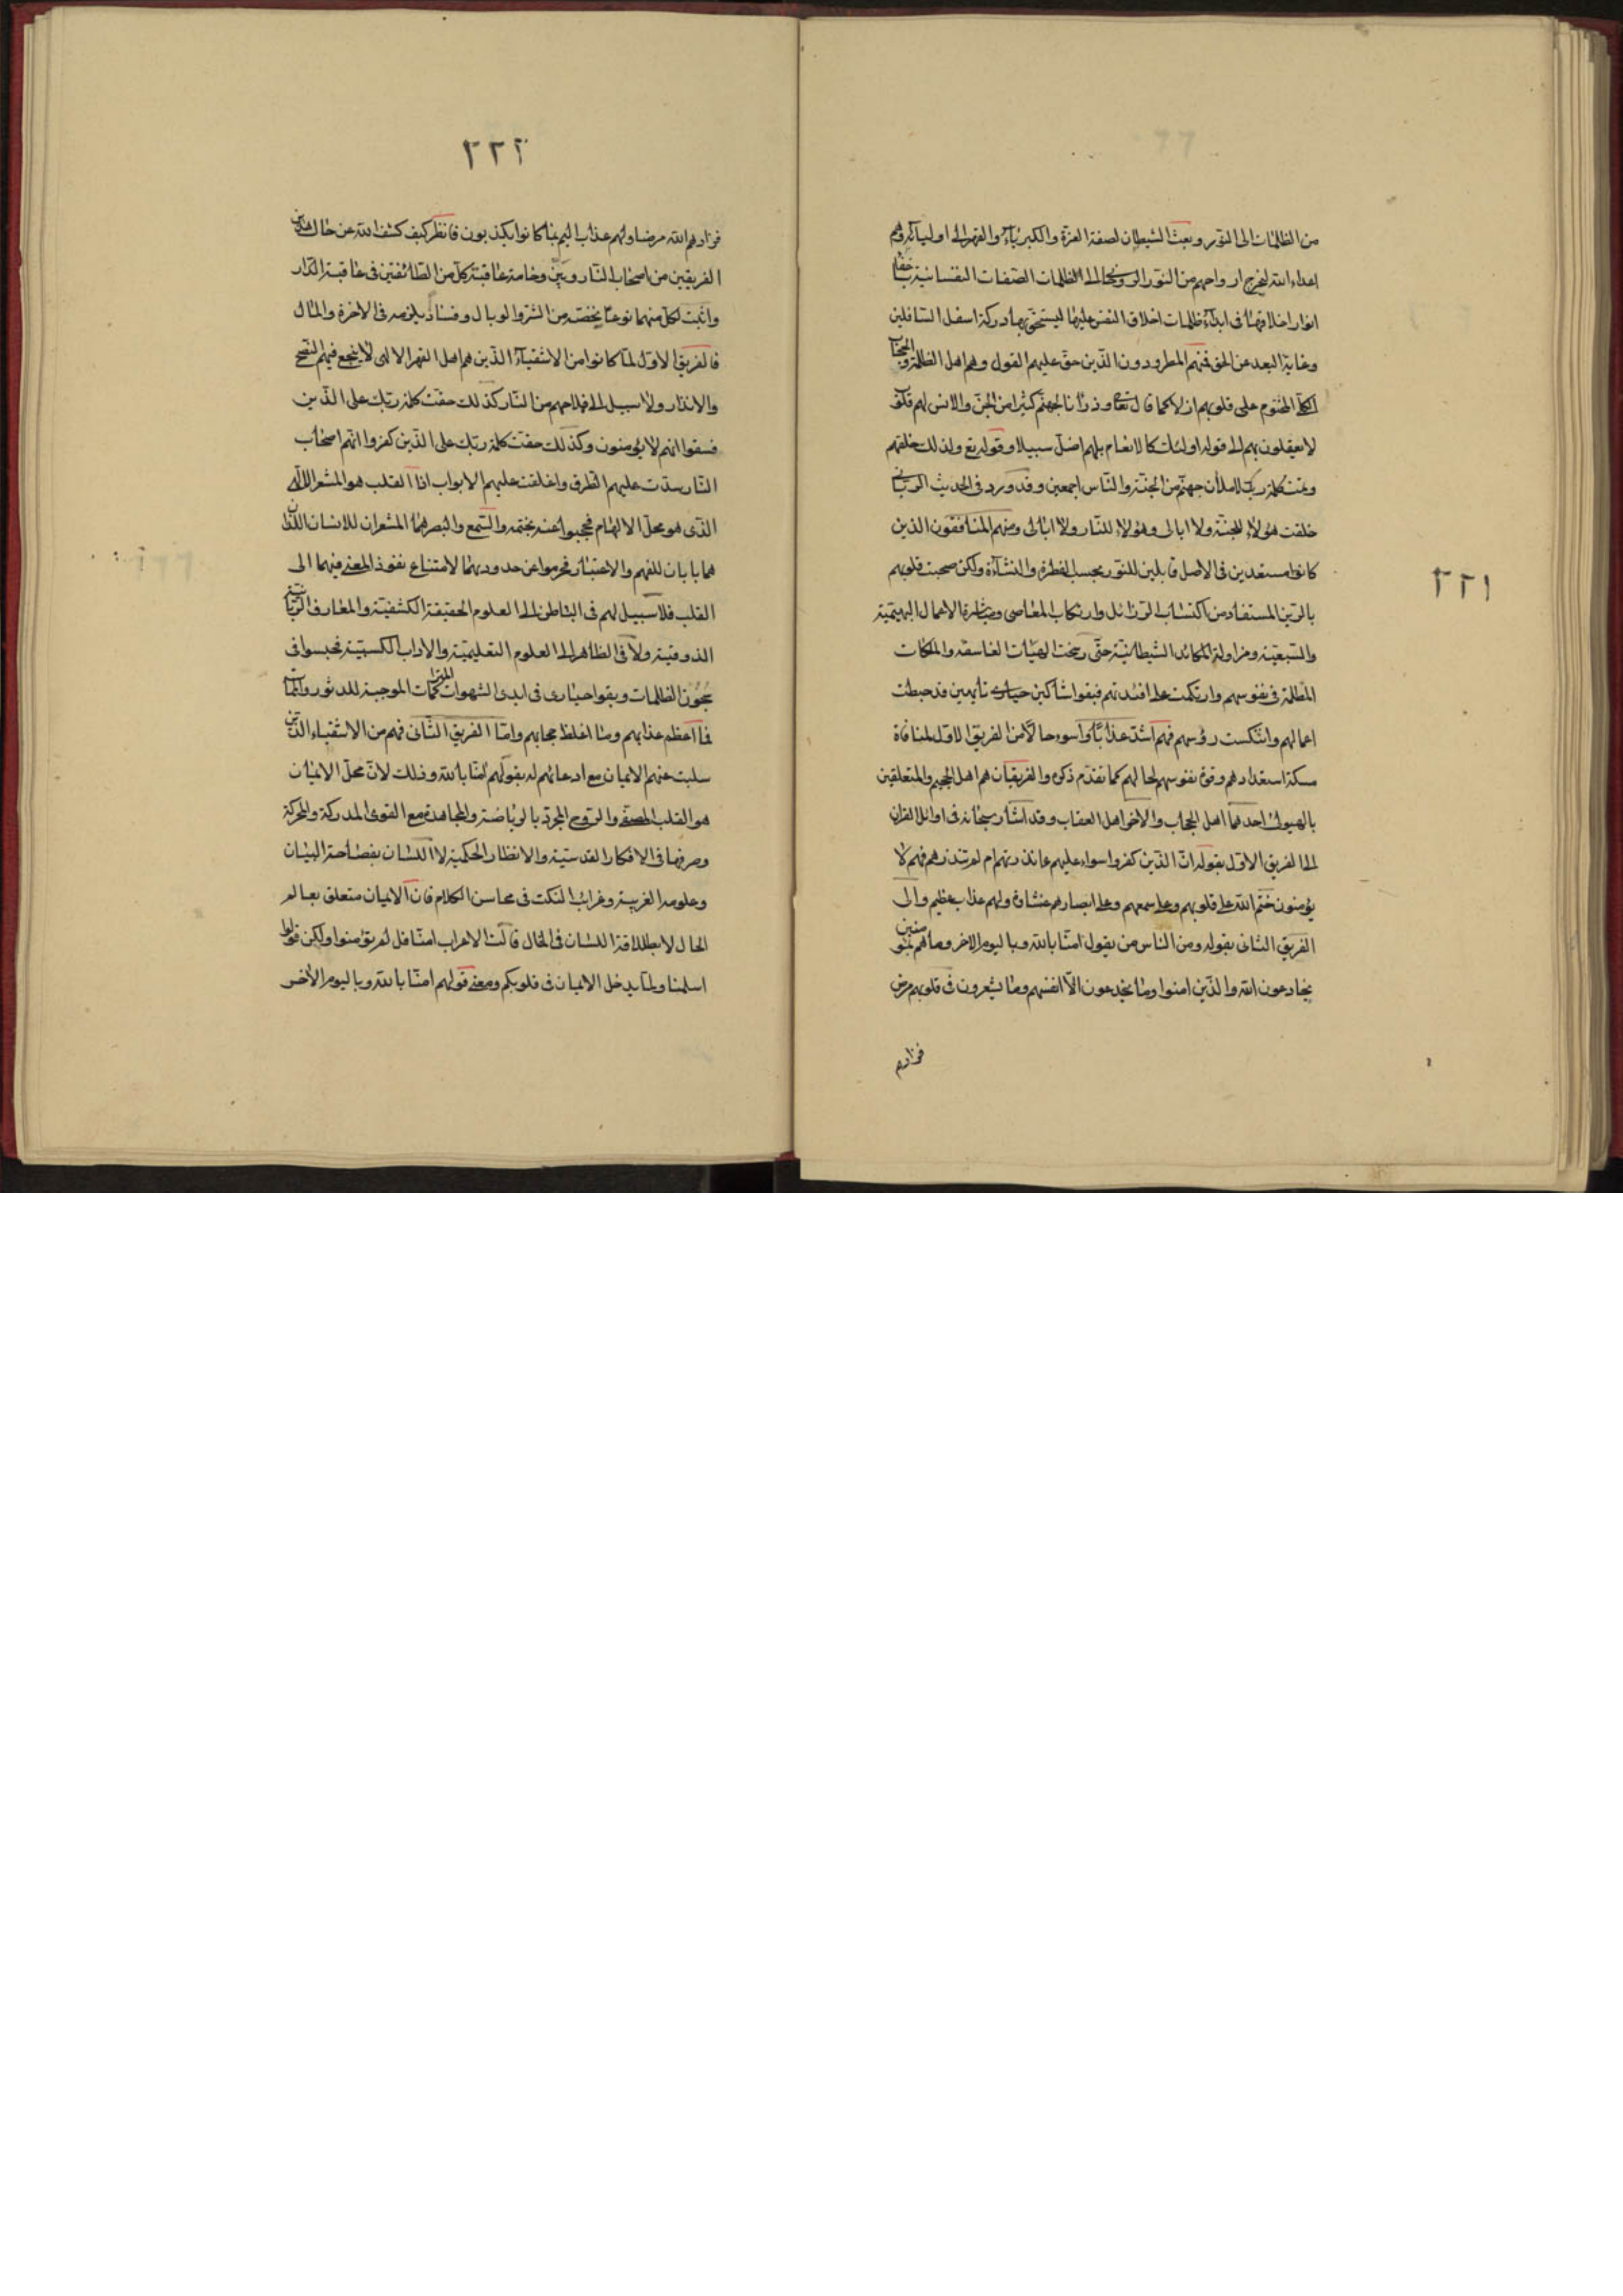 ٢٢١
من الظلمات الى النور وبعث الشيطان لصفة العزة والكبرياء والقهر الى اوليائه وهم
اعداء الله ليخرج ارواحهم من النور الروحانى الى الظلمات الصفات النفسانية
انوار اخلاقها فى ابداء ظلمات اخلاق النفس عليها ليستحق بها دركة اسفل السافلين
وغاية البعد عن الحق فمنهم المطرودون الذين حق عليهم القول وهم اهل الظلمة والحجاب
الكلى المختوم على قلوبهم ازلا كما قال تعالى وذرأنا لجهنم كثيرا من الجن والانس لهم قلوب
لا يعقلون بهم الى قوله اولئك كالانعام بلهم اضل سبيلا وقوله تع ولذلك خلقهم
وتمت كلمة ربك لاملأن جهنم من الجنة والناس اجمعين وقد ورد فى الحديث الربانى
خلقت هؤلاء للجنة ولا ابالى وهؤلاء للنار ولا ابالى ومنهم المنافقون الذين
كانوا مستعدين فى الاصل قابلين للنور بحسب الفطرة والنشأة ولكن صحبت قلوبهم
بالرين المستفاد من اكتساب الرذائل وارتكاب المعاصى ومباشرة الاعمال البهيمية
والسبعية ومزاولة المكائد الشيطانية حتى رسخت الهيئات الغاسقة والملكات
المظلمة فى نفوسهم وارتكمت على افئدتهم فبقوا شاكين حيارى تايهين قد حبطت
اعمالهم وانتكست رؤسهم فهم اشد عذابا واسوء حالا من الفريق الاول لمنافاة
مسكة استعدادهم وقوة نفوسهم لحالهم كما تقدم ذكره والفريقان هم اهل الجحيم والمتعلقين
بالهيولى احدهما اهل الحجاب والاخر اهل العقاب وقد اشار سبحانه فى اوائل القران
الى الفريق الاول بقوله ان الذين كفروا سواء عليهم ءانذرتهم ام لم تنذرهم فهم لا
يؤمنون ختم الله على قلوبهم وعلى سمعهم وعلى ابصارهم غشاوة ولهم عذاب عظيم والى
الفريق الثانى بقوله ومن الناس من يقول امنا بالله وباليوم الاخر وما هم بمؤمنين
يخادعون الله والذين امنوا وما يخدعون الا انفسهم وما يشعرون فى قلوبهم مرض
فزادهم
٢٢٢
فزادهم الله مرضا ولهم عذاب اليم بما كانوا يكذبون فانظر كيف كشف الله عن حال هذين
الفريقين من اصحاب النار وبين وخامة عاقبة كل من الطائفتين فى عاقبة الدار
واثبت لكل منهما نوعا يخصه من الشر والوبال وفساد يلزمه فى الاخرة والمال
فالفريق الاول لما كانوا من الاشقياء الذين هم اهل القهر الالهى لا ينجع فيهم النصح
والانذار ولا سبيل الى فلاحهم من النار كذلك حقت كلمة ربك على الذين
فسقوا انهم لا يؤمنون وكذلك حقت كلمة ربك على الذين كفروا انهم اصحاب
النار سدت عليهم الطرق واغلقت عليهم الابواب اذا القلب هو المشعر الالهى
الذى هو محل الالهام فحجبوا عنه بختمه والسمع والبصر هما المشعران للانسان اللذان
هما بابان للفهم والاعتبار فحرموا عن حدودهما لامتناع نفوذ المعنى فيهما الى
القلب فلا سبيل لهم فى الباطن الى العلوم الحقيقة الكشفية والمعارف الربانية
الذوقية ولا فى الظاهر الى العلوم التعليمية والاداب الكسبية فحبسوا فى
سجون الظلمات وبقوا حيارى فى ايدى الشهوات الموجبة للدثور
فما اعظم عذابهم وما اغلظ حجابهم واما الفريق الثانى فهم من الاشقياء الذين
سلبت عنهم الايمان مع ادعائهم له بقولهم امنا بالله وذلك لان محل الايمان
هو القلب المصفى والروح المجرد بالرياضة والمجاهدة مع القوى المدركة والمحركة
وصرفها فى الافكار القدسية والانظار الحكمية لا اللسان بفصاحة البيان
وعلومه الغريبة وغرائب النكت فى محاسن الكلام فان الايمان متعلق بعالم
الحال لا بطلاقة اللسان فى الخال قالت الاعراب امنا قل لم تؤمنوا ولكن قولوا
اسلمنا ولما يدخل الايمان فى قلوبكم ومعنى قولهم امنا بالله وباليوم الاخر